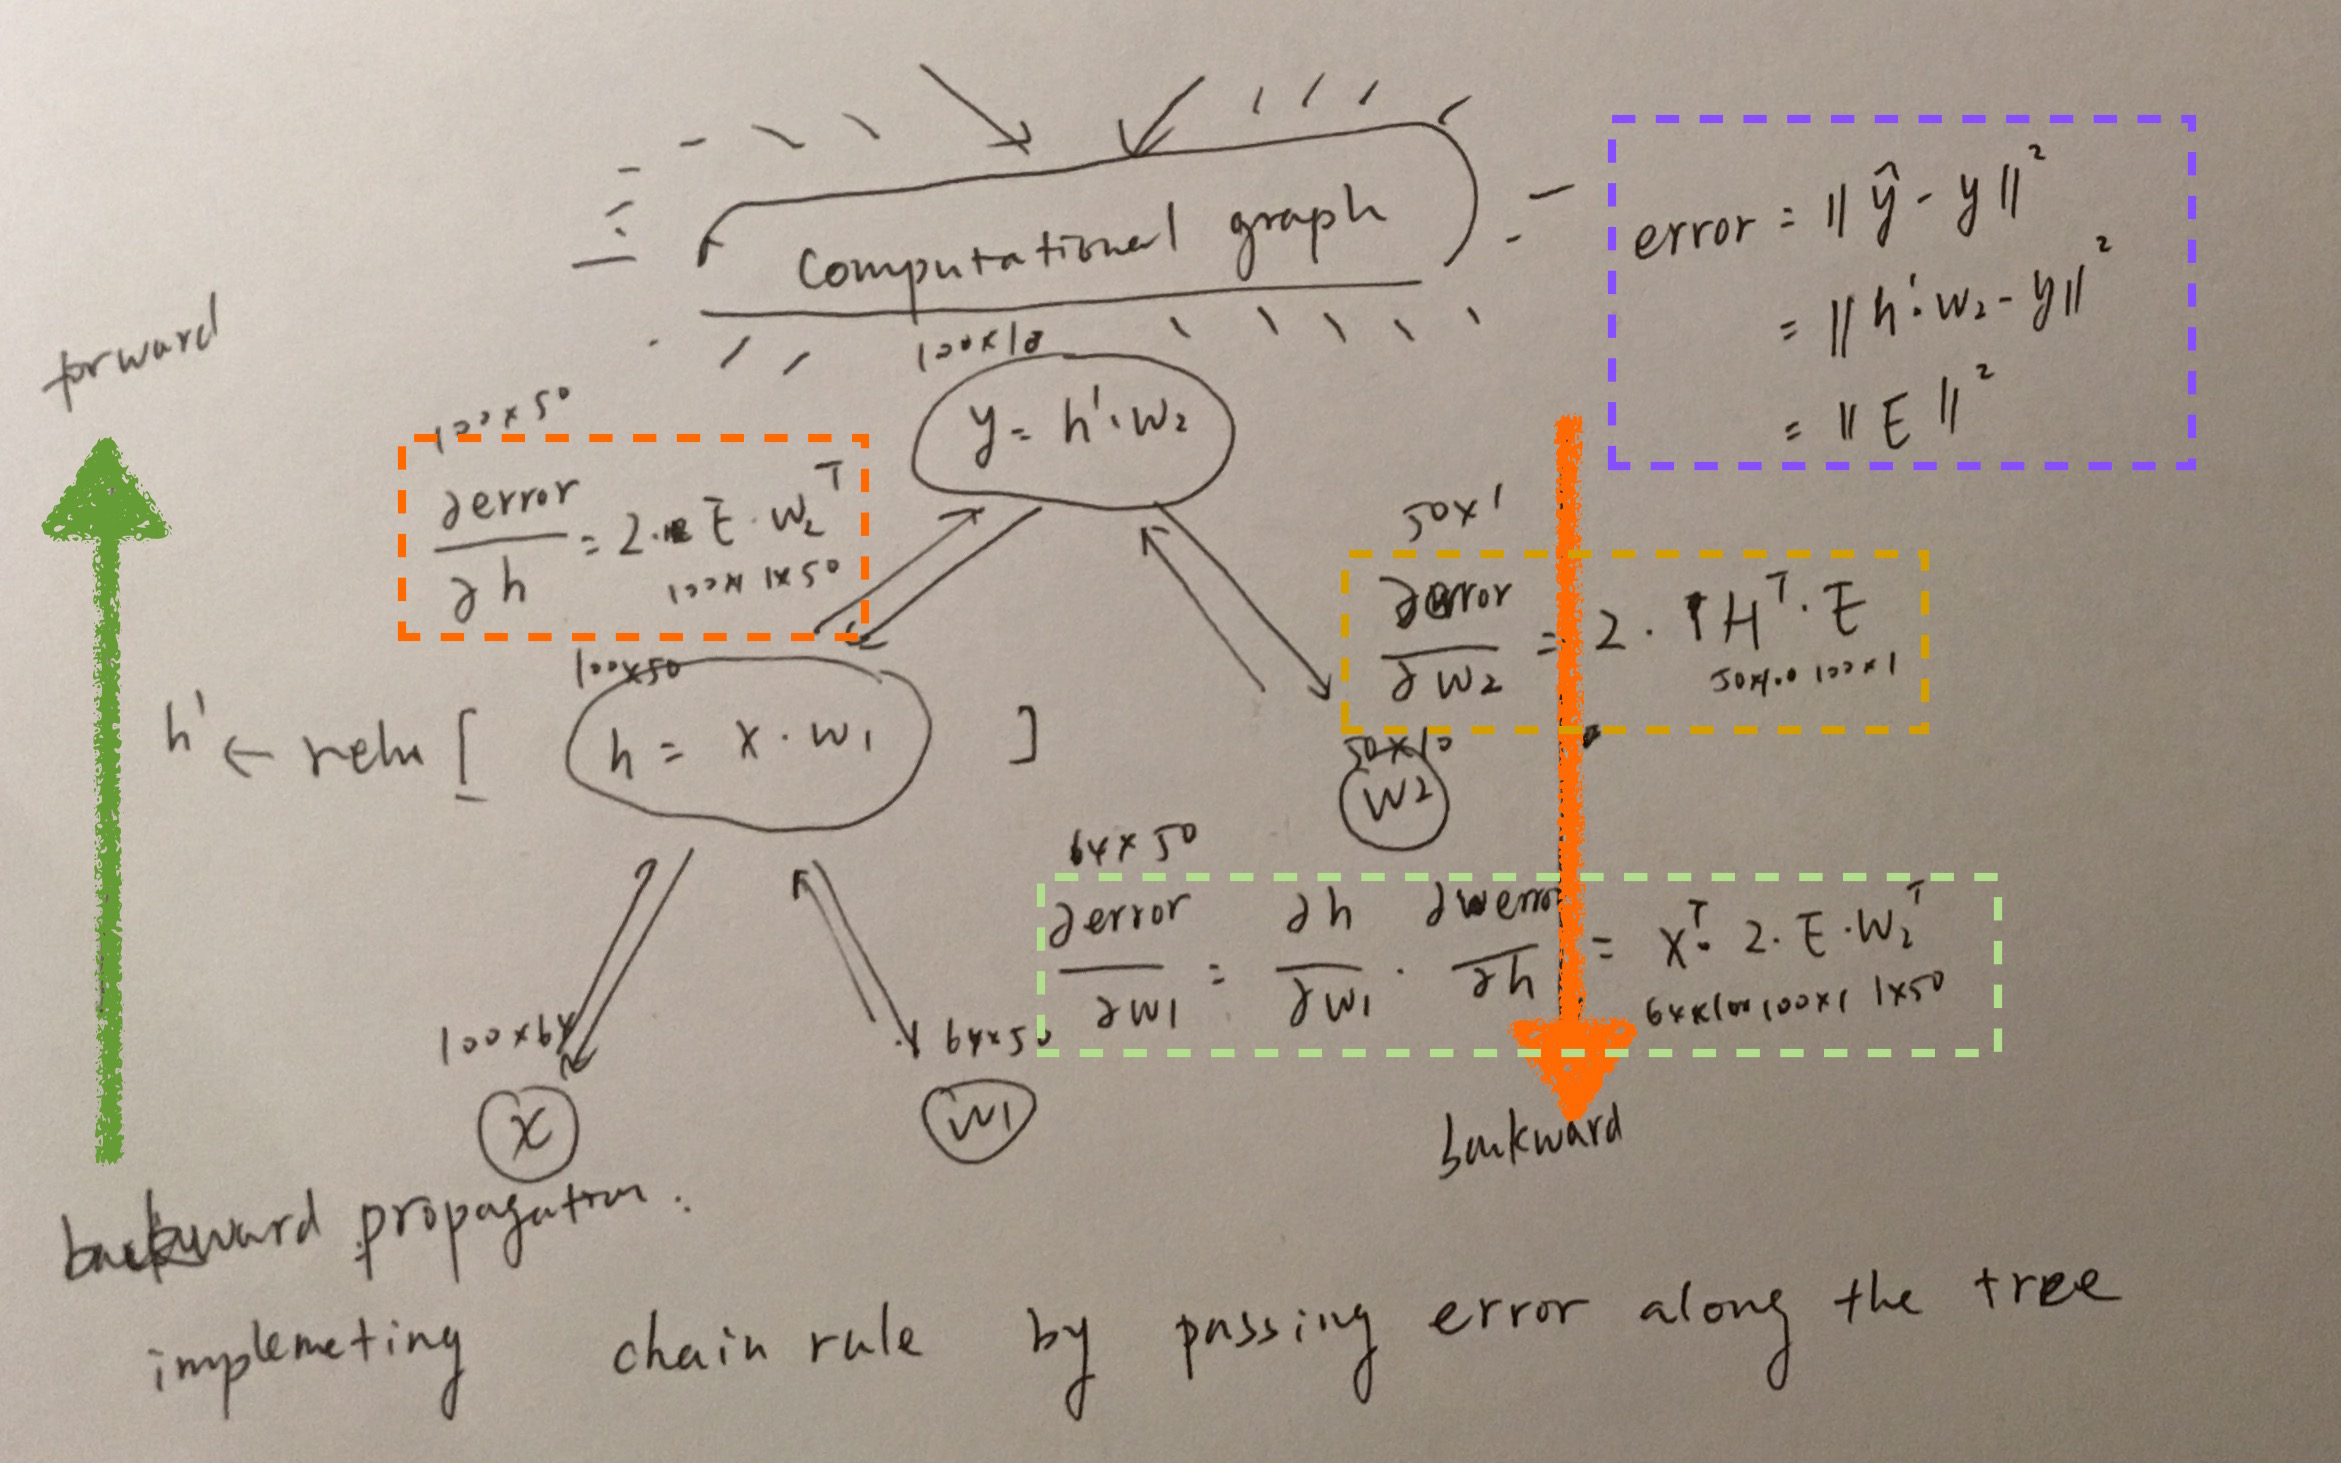 Computational graph
error = || ŷ - y ||²
= || h'·w₂ - y ||²
= || E ||²
forward
100×10
y = h'·w₂
100×50
∂error / ∂h = 2· E · w₂ᵀ
100×1 1×50
50×1
∂error / ∂w₂ = 2 · H ᵀ · E
50×100 100×1
100×50
h' ← relu [ h = x · w₁ ]
50×10
w2
64×50
∂error / ∂w₁ = ∂h / ∂w₁ · ∂error / ∂h = xᵀ· 2 · E · w₂ᵀ
64×100 100×1 1×50
100×64
64×50
x
w1
backward
backward propagation.
implemeting chain rule by passing error along the tree